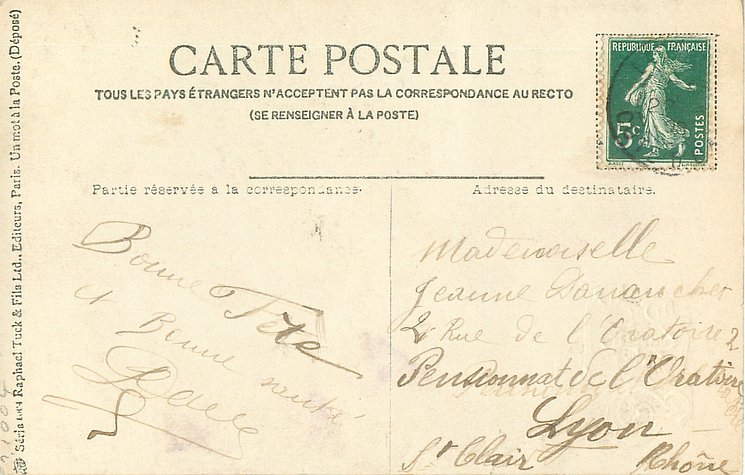 CARTE POSTALE
TOUS LES PAYS ÉTRANGERS N'ACCEPTENT PAS LA CORRESPONDANCE AU RECTO
(SE RENSEIGNER À LA POSTE)
RÉPUBLIQUE FRANÇAISE
5c
POSTES
Partie réservée à la correspondance.
Adresse du destinataire.
Bonne Fête
et Bonne santé
Mademoiselle
Jeanne
2 Rue de l'Oratoire 2
Pensionnat de l'Oratoire
Lyon
St Clair Rhône
Raphael Tuck & Fils Ltd., Editeurs, Paris. Un mot à la Poste. (Déposé)